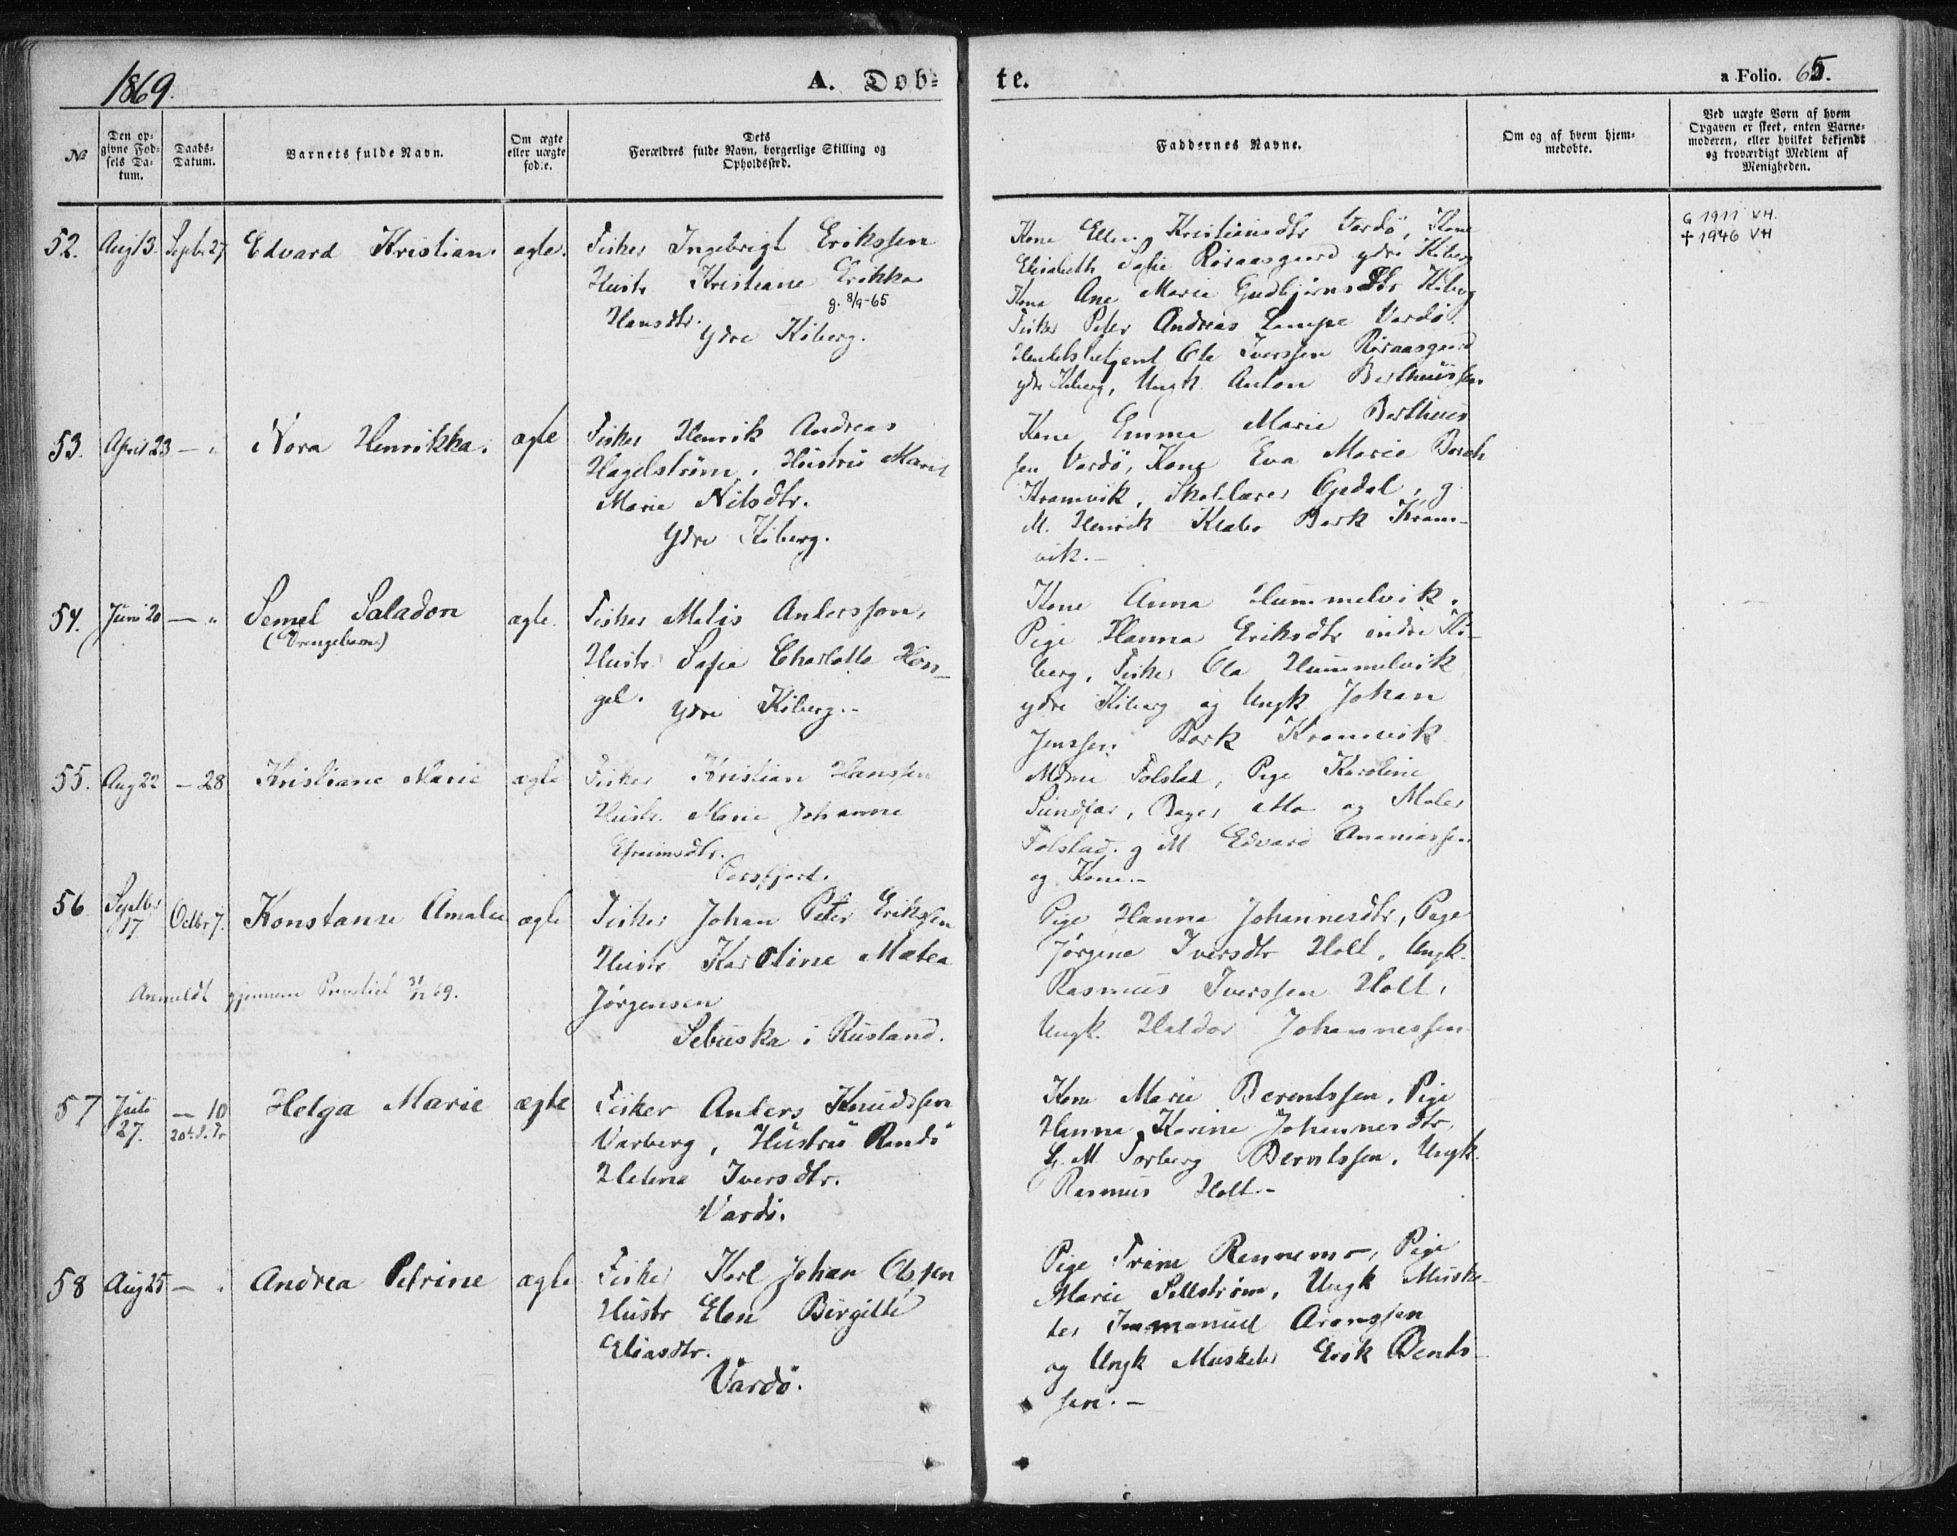 1869.
A. Døb-
te.
a Folio. 65.
№
Den op-
givne Fød-
sels Da-
tum.
Daabs-
Datum.
Barnets fulde Navn.
Om ægte
eller uægte
født.
Dets
Forældres fulde Navn, borgerlige Stilling og
Opholdssted.
Faddernes Navne.
Om og af hvem hjem-
medøbte.
Ved uægte Børn af hvem
Opgaven er skeet, enten Barne-
moderen, eller hvilket bekjendt
og troværdigt Medlem af
Menigheden.
52. Aug 13. Septbr 27 Edvard Kristian. ægte.
Fisker Ingebrigt Erikssen
Hustr Kristiane Erikka
g. 8/9-65
Hansdtr.
Ydre Kiberg.
Kone Ellen Kristiansdtr Vardö, Kone
Elisabeth Sofie Röraasgaard ydre Kiberg
Kone Ane Marie Gudbjörnsdtr Kiberg
Fisker Peter Andreas Lampe Vardö.
Handelsbetjent Ole Iverssen Röraasgaard
ydre Kiberg, Ungk. Anton Berthüssen
G 1911 VH.
† 1946 VH
53. April 23 — " Nora Henrikka. ægte
Fisker Henrik Andreas
Hagelstrøm, Hustru Maret
Marie Nilsdtr.
Ydre Kiberg.
Kone Emma Marie Berthüs
sen Vardö, Kone Eva Marie Bork
Kramvik, Skolelærer Opdal, g
M. Henrik Klabo Bork Kram-
vik.—
54. Juni 20 — " Semel Saladon ægte.
(Drengebarn)
Fisker Matis Anderssøn,
Hustr. Sofie Charlotte Hon-
gel. Ydre Kiberg.-
Kone Anna Hummelvik.
Pige Hanna Eriksdtr indre Ki-
berg, Fisker Ola Hummelvik
ydre Kiberg og Ungk Johan
Jenssen Bork Kramvik
55. Aug 22 — 28 Kristiane Marie ægte
Fisker Kristian Hanssen
Hustr. Marie Johanne
Efraimsdtr.
Persfjord.
Mdme Folstad, Pige Karoline
Sundfær, Bager Mo og Maler
Folstad. g M Edvard Ananiassen
og Kone.—
56 Septbr 17 Octbr 7. Konstanse Amalie ægte
Anmeldt gjennem Provstiet 31/12 69.
Fisker Johan Peter Erikssen
Hustr Karoline Matea
Jörgensen
Sebuska i Rusland.
Pige Hanna Johannesdtr, Pige
Jörgine Iversdtr Holt, Ungk.
Rasmus Iverssen Holt,
Ungk. Haldor Johannessen
57 Juli 27. — 10 Helga Marie ægte
20 S. Tr
Fisker Anders Knudssen
Varberg, Hustru Randi
Helene Iversdtr.
Vardö.
Kone Marie Berentssen, Pige
Hanna Karine Johannesdtr,
G. M Torberg Berntssen, Ungk.
Rasmus Holt.—
58 Aug 25 — " Andrea Petrine ægte
Fisker Karl Johan Olssen
Hustr Elen Birgitte
Eliasdtr.
Vardö.
Pige Trine Rennemo, Pige
Marie Sellström, Ungk Muske-
ter Immanuel Aronssen
og Ungk Musketer Erik Bents-
sen.—